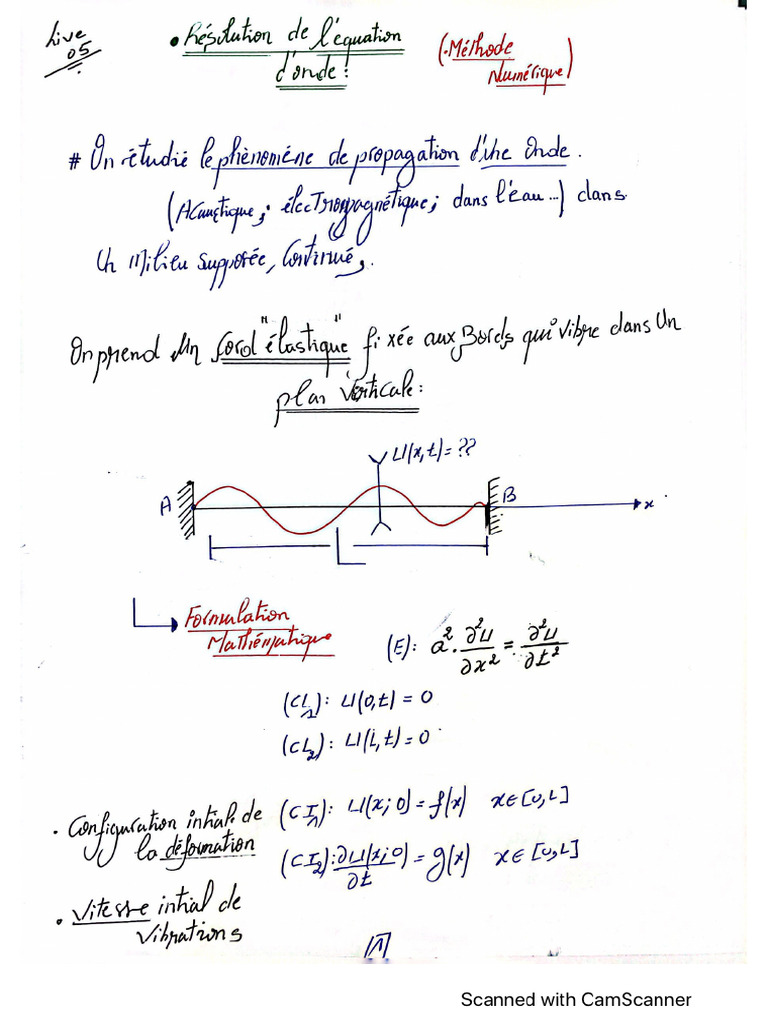 Live
05
• Résolution de l'équation
d'onde :
(Méthode
Numérique)
# On étudie le phénoméne de propagation d'une Onde.
(Acoustique; électromagnétique; dans l'eau...) dans
Un Milieu supposée, Continue,.
On prend Un Cord "élastique" fixée aux Bords qui vibre dans Un
plan Verticale :
U(x,t)= ??
A
B
x
L
Formulation
Mathématique
(E): a². ∂²U/∂x² = ∂²U/∂t²
(CL₁): U(0,t) = 0
(CL₂): U(L,t) = 0
• Configuration intiale de
la déformation
(CI₁): U(x;0) = f(x) x∈[0,L]
(CI₂): ∂U(x;0)/∂t = g(x) x∈[0,L]
• Vitesse intial de
Vibrations
[1]
Scanned with CamScanner